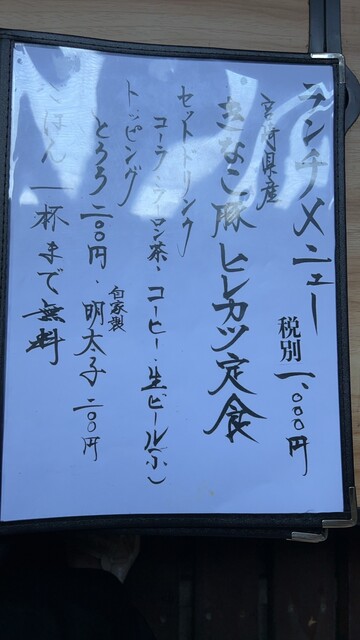 ランチメニュー
税別 一、〇〇〇円
宮崎県産
きなこ豚ヒレカツ定食
セットドリンク
コーラ・ウーロン茶・コーヒー・生ビール小)
トッピング
とろろ二〇〇円・自家製明太子二〇〇円
ごはん一杯まで無料